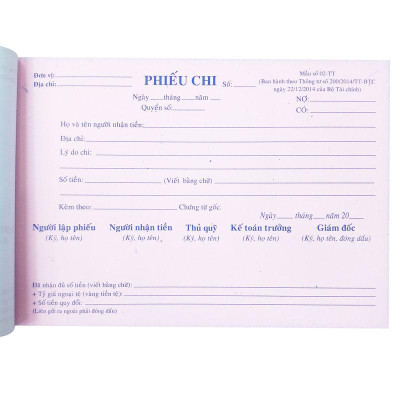 Đơn vị:
Địa chỉ:
PHIẾU CHI
Số:
Mẫu số 02-TT
(Ban hành theo Thông tư số 200/2014/TT-BTC
ngày 22/12/2014 của Bộ Tài chính)
Ngày tháng năm
Quyển số:
NỢ:
CÓ:
Họ và tên người nhận tiền:
Địa chỉ:
Lý do chi:
Số tiền: (Viết bằng chữ)
Kèm theo: Chứng từ gốc.
Ngày tháng năm 20
Người lập phiếu Người nhận tiền Thủ quỹ Kế toán trưởng Giám đốc
(Ký, họ tên) (Ký, họ tên) (Ký, họ tên) (Ký, họ tên) (Ký, họ tên, đóng dấu)
Đã nhận đủ số tiền (viết bằng chữ):
+ Tỷ giá ngoại tệ (vàng tiền tệ):
+ Số tiền quy đổi:
(Liên gởi ra ngoài phải đóng dấu)